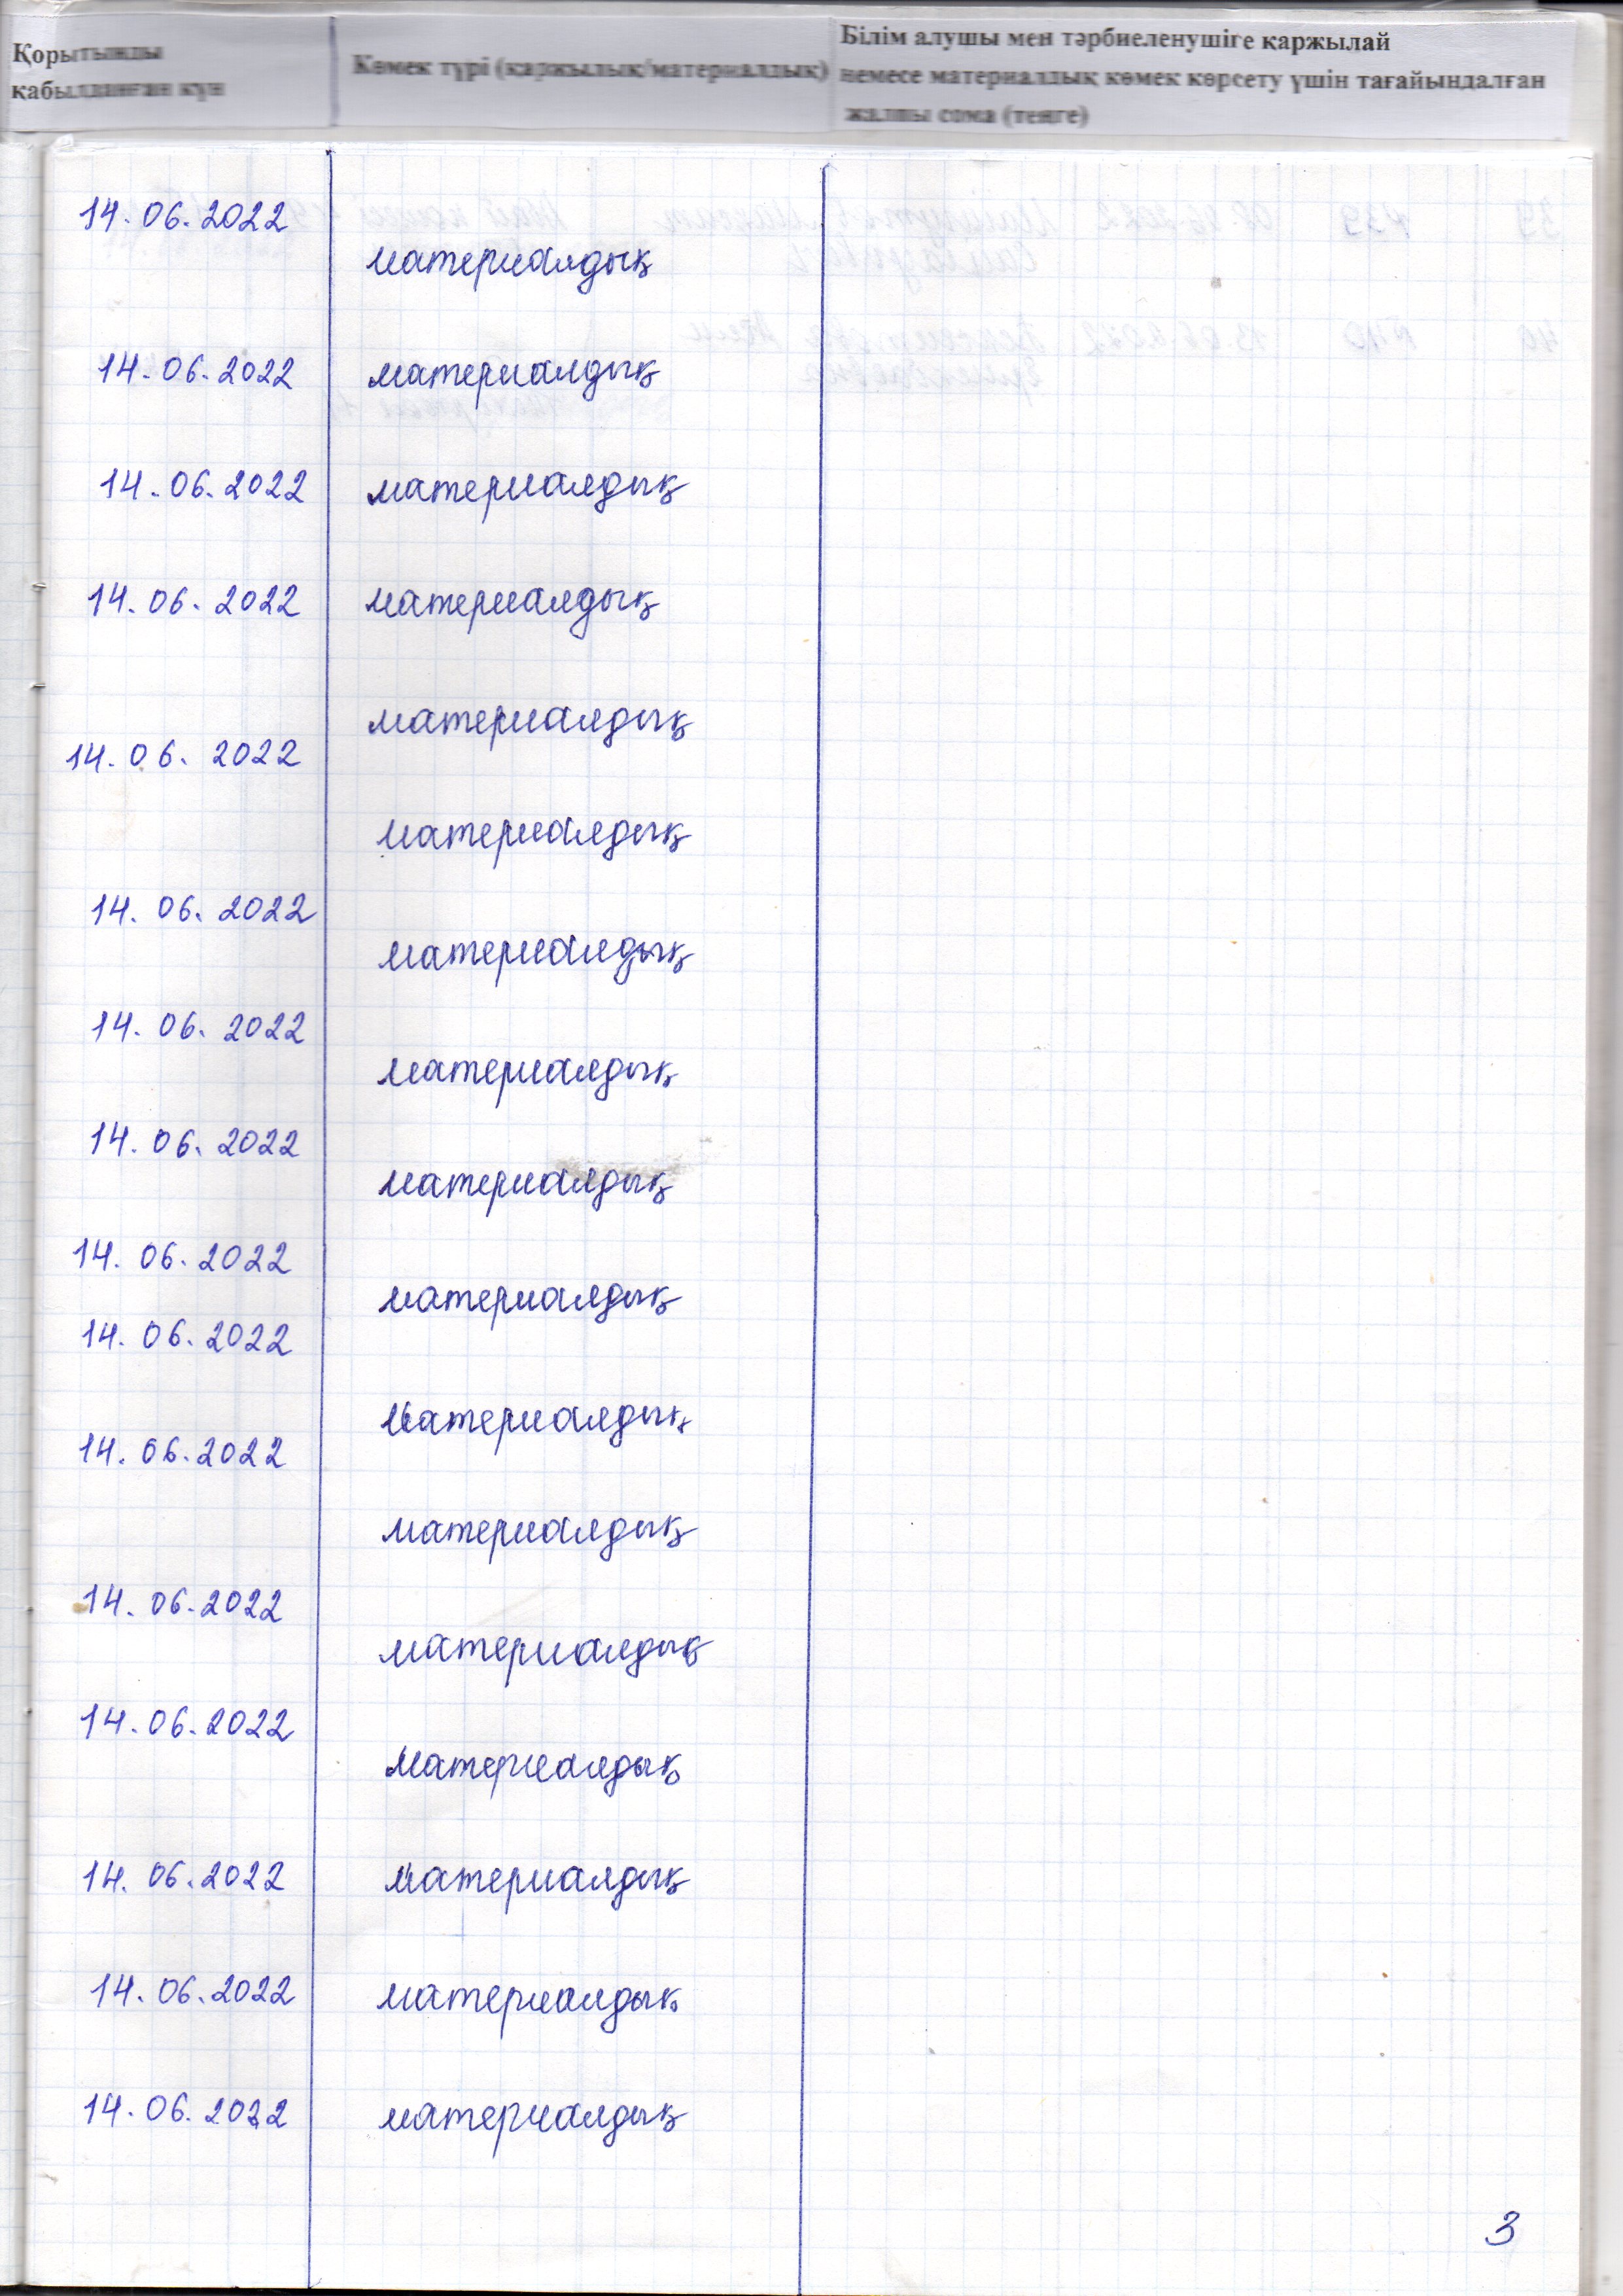 Қорытынды
қабылданған күн
Көмек түрі (қаржылық/материалдық)
Білім алушы мен тәрбиеленушіге қаржылай
немесе материалдық көмек көрсету үшін тағайындалған
жалпы сома (теңге)
14.06.2022
материалдық
14.06.2022 материалдық
14.06.2022 материалдық
14.06.2022 материалдық
материалдық
14.06.2022
материалдық
14.06.2022
материалдық
14.06.2022
материалдық
14.06.2022
материалдық
14.06.2022
материалдық
14.06.2022
материалдық
14.06.2022
материалдық
14.06.2022
материалдық
14.06.2022
материалдық
14.06.2022 материалдық
14.06.2022 материалдық
14.06.2022 материалдық
3